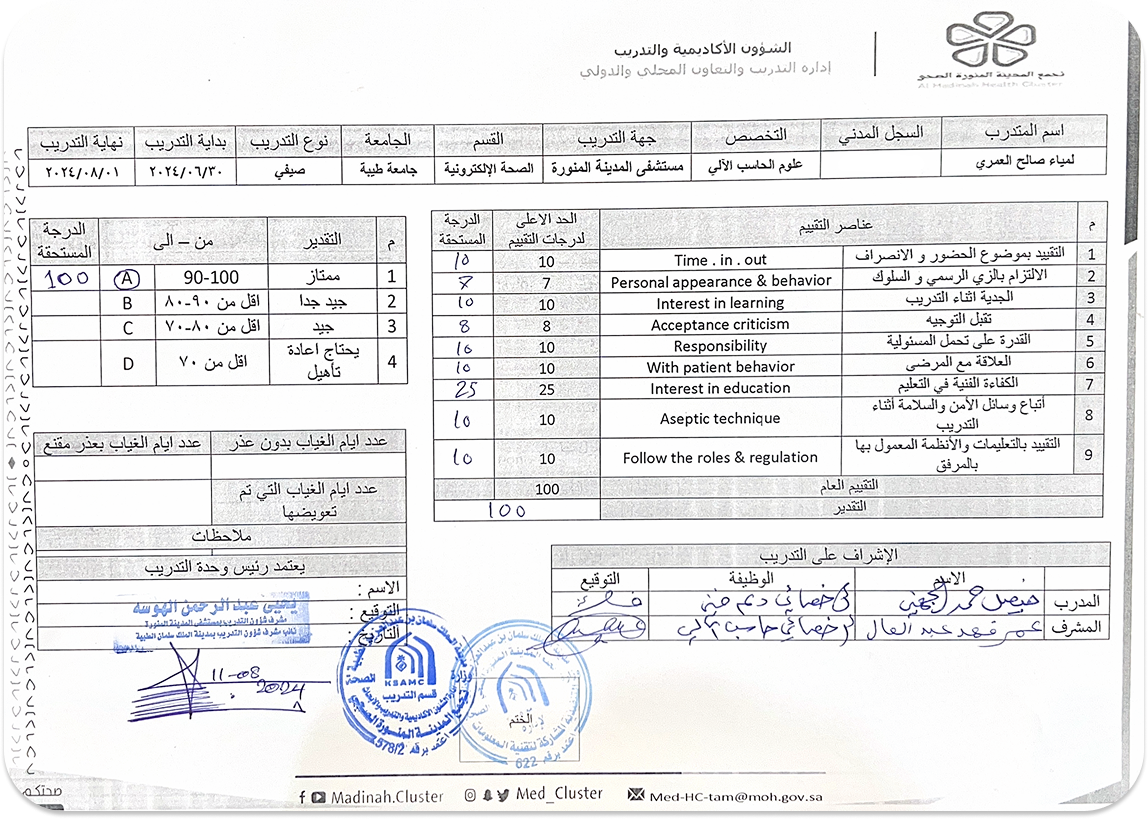 الشؤون الأكاديمية والتدريب
إدارة التدريب والتعاون المحلي والدولي
تجمع المدينة المنورة الصحي
Al Madinah Health Cluster
اسم المتدرب | السجل المدني | التخصص | جهة التدريب | القسم | الجامعة | نوع التدريب | بداية التدريب | نهاية التدريب
لمياء صالح العمري | | علوم الحاسب الآلي | مستشفى المدينة المنورة | الصحة الإلكترونية | جامعة طيبة | صيفي | ٢٠٢٤/٠٦/٣٠ | ٢٠٢٤/٠٨/٠١
م | عناصر التقييم | الحد الاعلى لدرجات التقييم | الدرجة المستحقة
1 | التقييد بموضوع الحضور و الانصراف | Time . in . out | 10 | 10
2 | الالتزام بالزي الرسمي و السلوك | Personal appearance & behavior | 7 | 7
3 | الجدية اثناء التدريب | Interest in learning | 10 | 10
4 | تقبل التوجيه | Acceptance criticism | 8 | 8
5 | القدرة على تحمل المسئولية | Responsibility | 10 | 10
6 | العلاقة مع المرضى | With patient behavior | 10 | 10
7 | الكفاءة الفنية في التعليم | Interest in education | 25 | 25
8 | أتباع وسائل الأمن والسلامة أثناء التدريب | Aseptic technique | 10 | 10
9 | التقييد بالتعليمات والأنظمة المعمول بها بالمرفق | Follow the roles & regulation | 10 | 10
التقييم العام | 100
التقدير | 100
م | التقدير | من – الى | الدرجة المستحقة
1 | ممتاز | 90-100 | A | 100
2 | جيد جدا | اقل من ٩٠-٨٠ | B
3 | جيد | اقل من ٨٠-٧٠ | C
4 | يحتاج اعادة تأهيل | اقل من ٧٠ | D
عدد ايام الغياب بدون عذر | عدد ايام الغياب بعذر مقنع
عدد ايام الغياب التي تم تعويضها
ملاحظات
يعتمد رئيس وحدة التدريب
الاسم :
التوقيع :
التاريخ :
يحيى عبدالرحمن الهوسه
مشرف شؤون التدريب بمستشفى المدينة المنورة
نائب مشرف شؤون التدريب بمدينة الملك سلمان الطبية
11-08
2024
الإشراف على التدريب
الاسم | الوظيفة | التوقيع
المدرب | فيصل حمد الجهني | أخصائي دعم فني
المشرف | عمر فهد عبد العال | أخصائي حاسب آلي
وزارة الصحة
KSAMC
قسم التدريب
تجمع المدينة المنورة الصحي
اعتمد برقم 578/2
الختم
اعتمد برقم 622
Madinah.Cluster
Med_Cluster
Med-HC-tam@moh.gov.sa